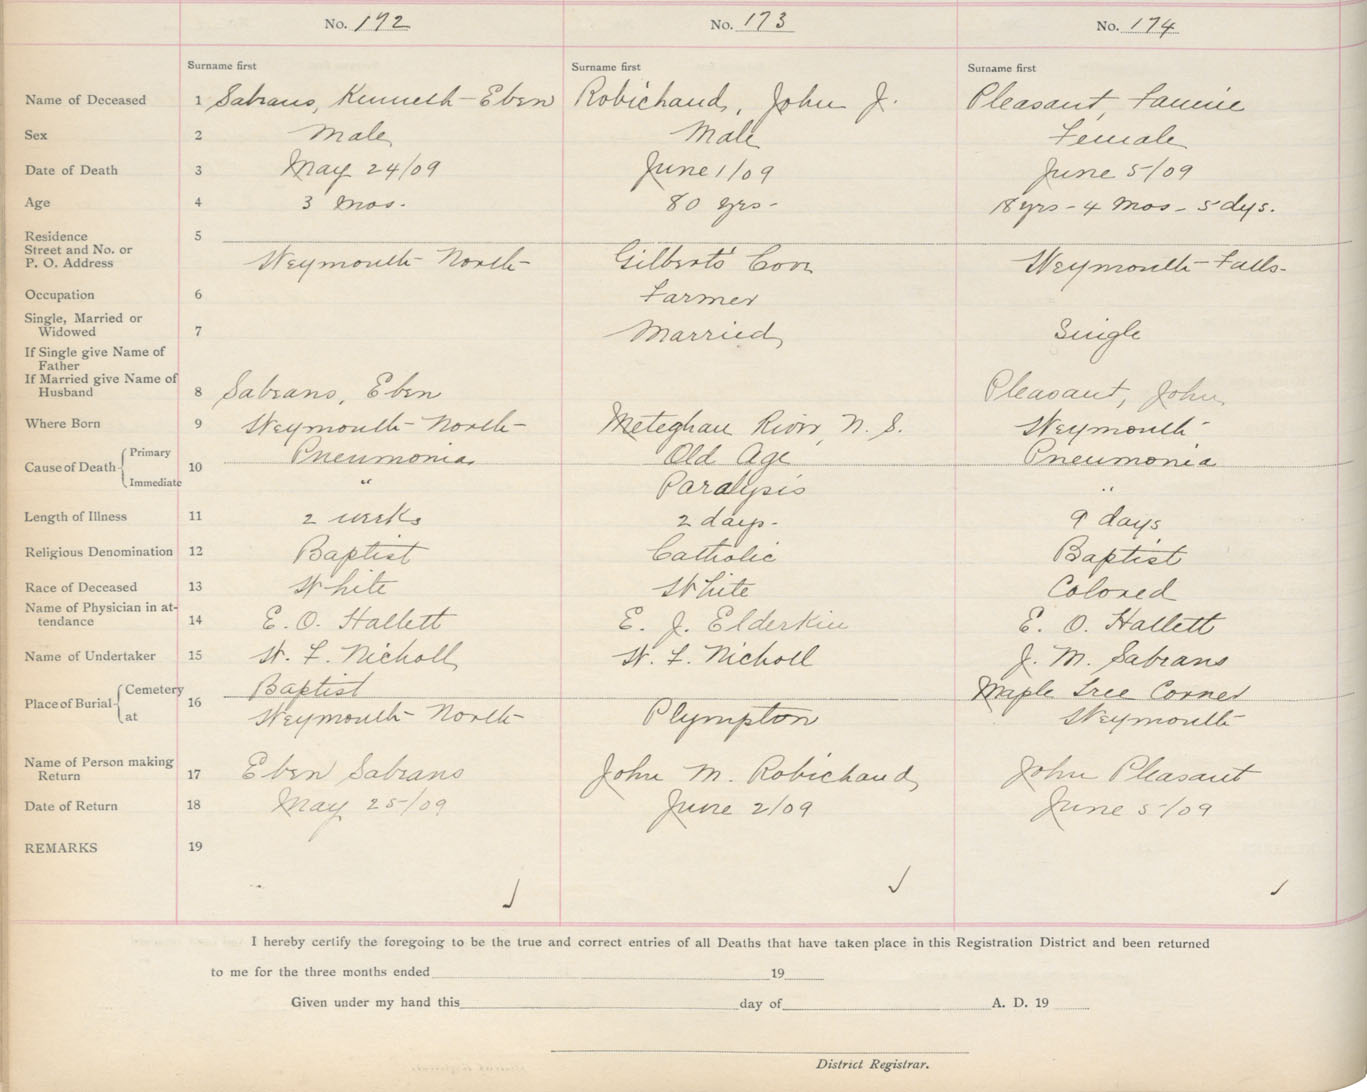 No. 172 No. 173 No. 174
Surname first Surname first Surname first
Name of Deceased 1 Sabeans, Kenneth-Eben Robichaud, John J. Pleasant, Fannie
Sex 2 Male Male Female
Date of Death 3 May 24/09 June 1/09 June 5/09
Age 4 3 mos. 80 yrs- 18 yrs-4 mos-5 dys.
Residence 5
Street and No. or
P. O. Address Weymouth-North- Gilberts' Cove Weymouth-Falls-
Occupation 6 Farmer
Single, Married or
Widowed 7 Married Single
If Single give Name of
Father
If Married give Name of
Husband 8 Sabeans, Eben Pleasant, John
Where Born 9 Weymouth-North- Meteghan River, N. S. Weymouth-
Cause of Death 10 Primary Pneumonia Old Age Pneumonia
Immediate " Paralysis "
Length of Illness 11 2 weeks 2 days- 9 days
Religious Denomination 12 Baptist Catholic Baptist
Race of Deceased 13 White White Colored
Name of Physician in at-
tendance 14 E. O. Hallett E. J. Elderkin E. O. Hallett
Name of Undertaker 15 W. F. Nicholl W. F. Nicholl J. M. Sabeans
Place of Burial 16 Cemetery Baptist Maple Tree Corner
at Weymouth-North- Plympton Weymouth-
Name of Person making
Return 17 Eben Sabeans John M. Robichaud John Pleasant
Date of Return 18 May 25/09 June 2/09 June 5/09
REMARKS 19
I hereby certify the foregoing to be the true and correct entries of all Deaths that have taken place in this Registration District and been returned
to me for the three months ended 19
Given under my hand this day of A. D. 19
District Registrar.